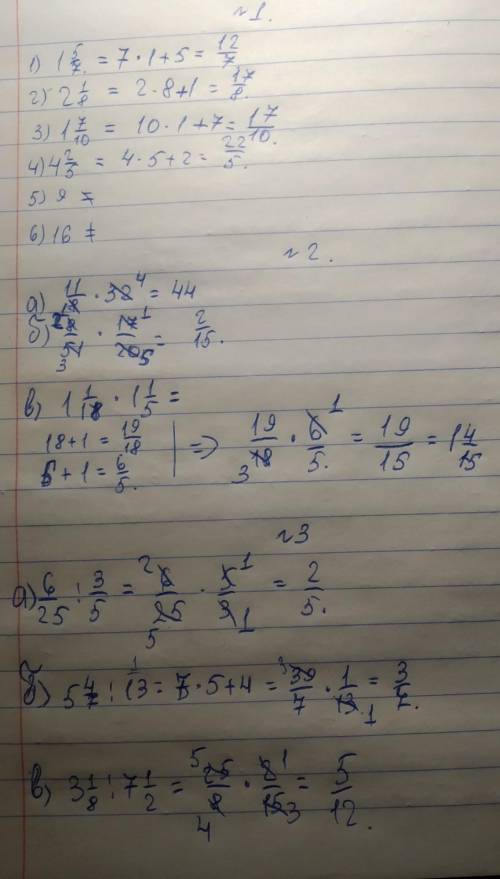 №1.
1) 1 5/7 = 7·1+5 = 12/7
2) 2 1/8 = 2·8+1 = 17/8.
3) 1 7/10 = 10·1+7 = 17/10.
4) 4 2/5 = 4·5+2 = 22/5.
5) 9 =
6) 16 =
№2.
а) 11/ · 4 = 44
б) 2/3 · 17 1/20 5 = 2/15.
в) 1 1/18 · 1 1/5 =
18+1 = 19/18
5+1 = 6/5. | => 19/18 3 · 6 1/5. = 19/15 = 1 4/15
№3
а) 6/25 : 3/5 = 2 6/25 5 · 5 1/3 1 = 2/5.
б) 5 4/7 : 13 = 7·5+4 = 3 39/7 · 1/13 1 = 3/7.
в) 3 1/8 : 7 1/2 = 5 25/8 4 · 1/15 3 = 5/12.